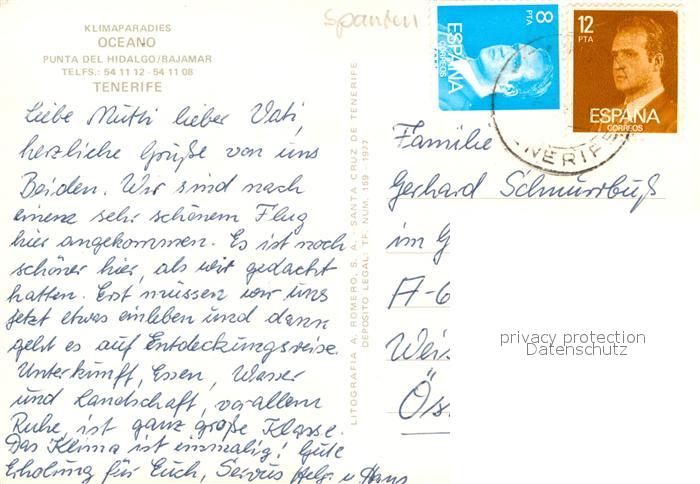 Spanien
KLIMAPARADIES
OCEANO
PUNTA DEL HIDALGO/BAJAMAR
TELFS.: 54 11 12 - 54 11 08
TENERIFE
Liebe Mutti lieber Vati,
herzliche Grüße von uns
Beiden. Wir sind nach
einem sehr schönem Flug
hier angekommen. Es ist noch
schöner hier, als wir gedacht
hatten. Erst müssen wir uns
jetzt etwas einleben und dann
geht es auf Entdeckungsreise.
Unterkunft, Essen, Wasser
und Landschaft, vor allem
Ruhe, ist ganz große Klasse.
Das Klima ist einmalig! Gute
Erholung für Euch, Servus Helg. u Hans
LITOGRAFIA A. ROMERO, S. A. - SANTA CRUZ DE TENERIFE
DEPOSITO LEGAL: TF. NUM. 159 - 1977
8 PTA
ESPAÑA
CORREOS
12 PTA
ESPAÑA
CORREOS
NERIF
Familie
Gerhard Schnurrbuß
im G
A-6
Weis
Ös
privacy protection
Datenschutz